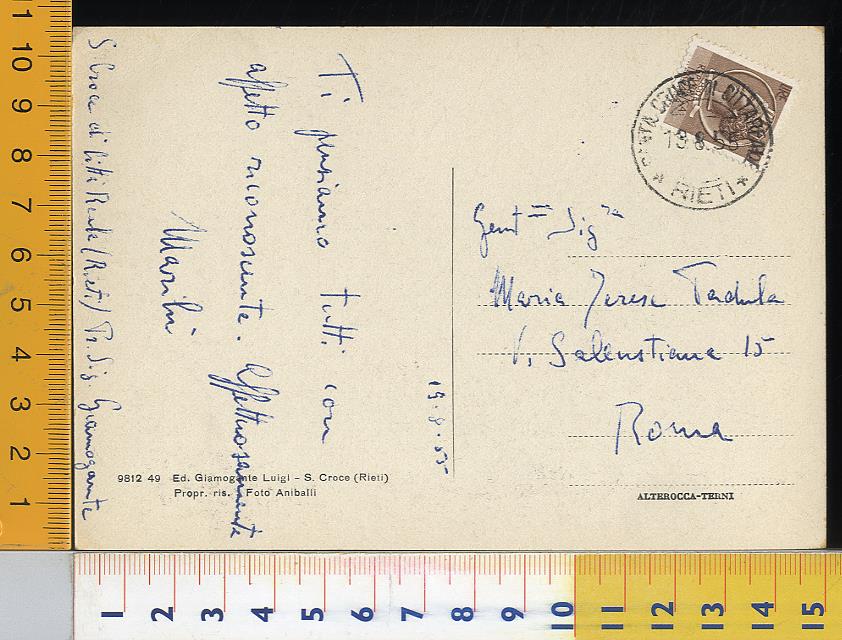 Ti pensiamo tutti con
affetto riconoscente. Affettuosamente
S Croce di Citti Reale (Rieti) Pr. Sig. Giamogante
19.8.55
SANTA CROCE DI CITTAREALE
19.8.55
* RIETI *
Gent== Sig.ra
Maria Teresa
V. Salenstiana 15
Roma
9812 49 Ed. Giamogante Luigi - S. Croce (Rieti)
Propr. ris. Foto Aniballi
ALTEROCCA-TERNI
11
10
9
8
7
6
5
4
3
2
1
1 2 3 4 5 6 7 8 9 10 11 12 13 14 15